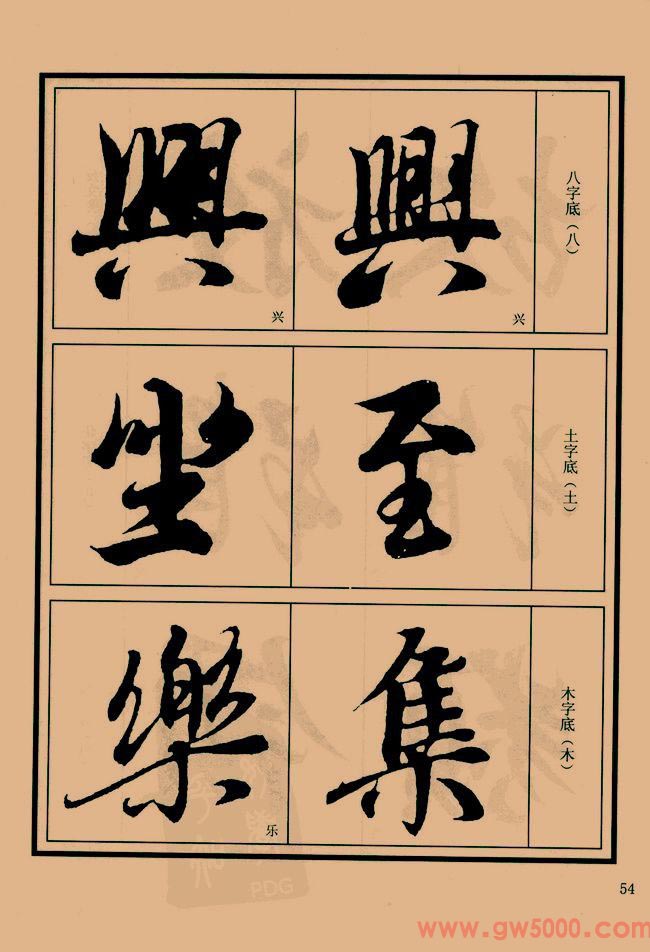 八字底（八）
興
兴
興
兴
土字底（土）
至
坐
木字底（木）
集
樂
乐
PDG
54
www.gw5000.com